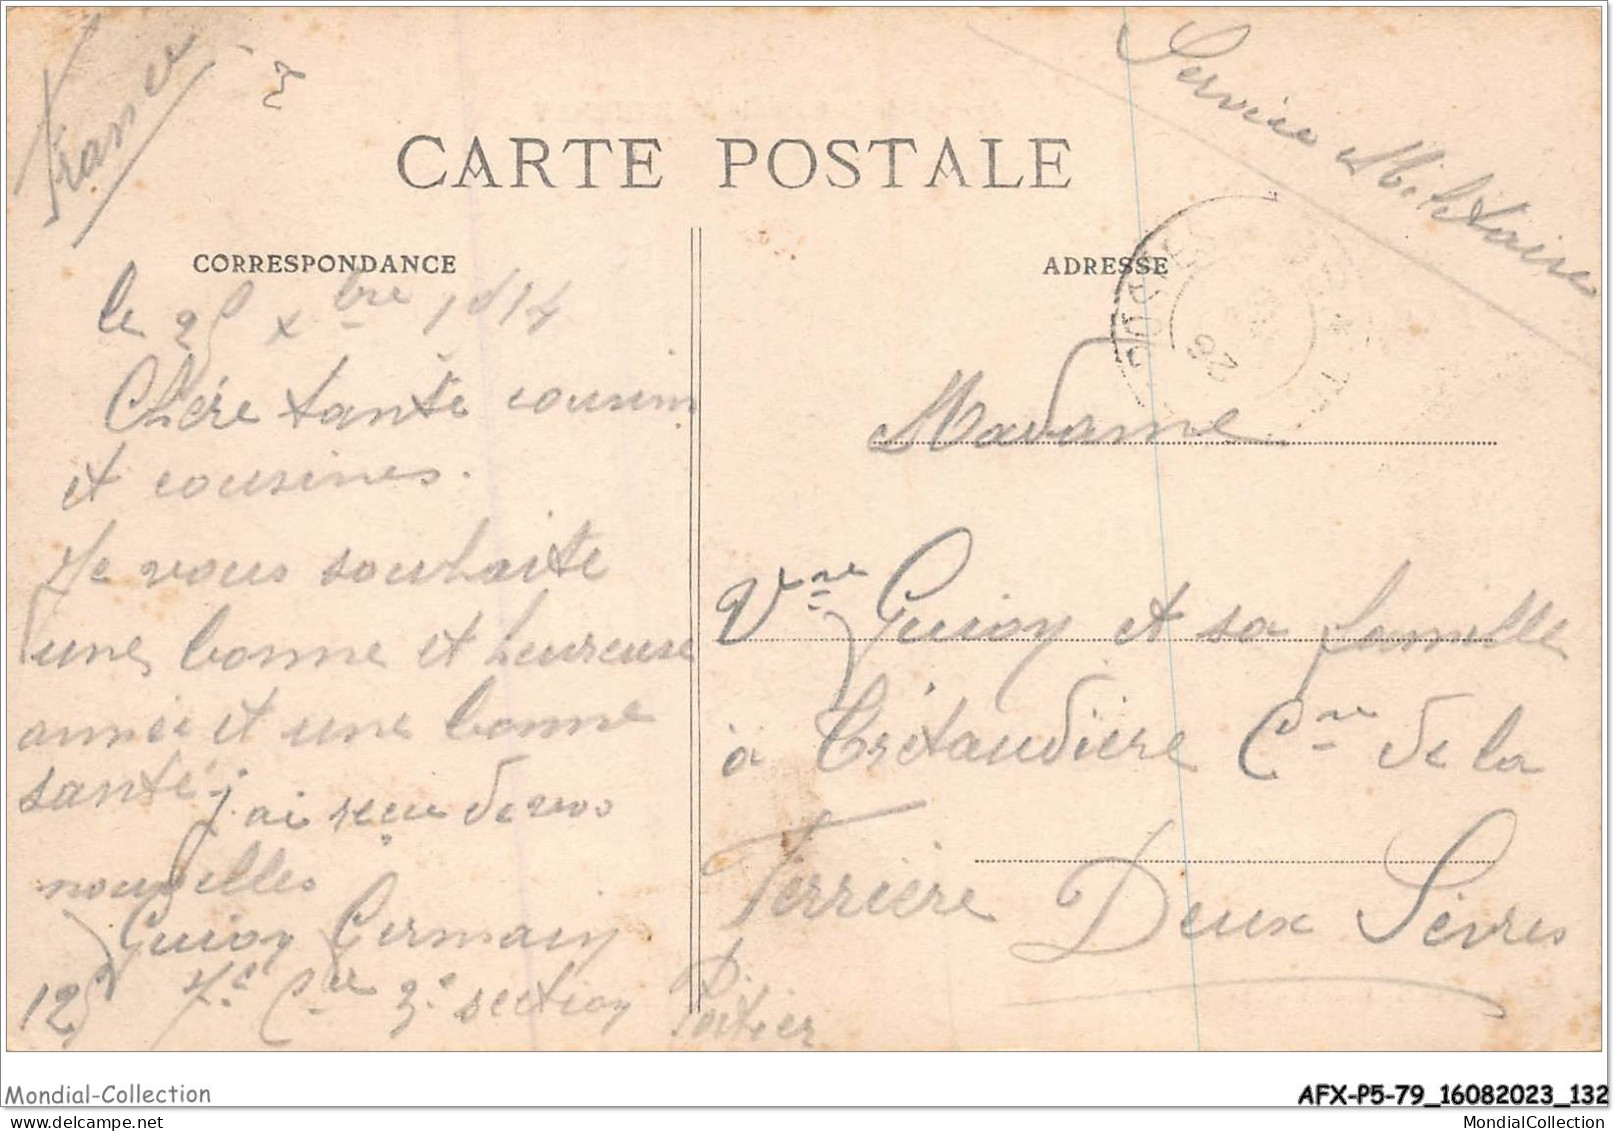 France
Service Militaire
CARTE POSTALE
CORRESPONDANCE
ADRESSE
le 25 xbre 1914
Chère tante cousins
et cousines.
Je vous souhaite
une bonne et heureuse
année et une bonne
santé.
j'ai reçu de vos
nouvelles
Guioy Germain
125 7e Cie 3e section
Poitier
Madame
Vve Guioy et sa famille
à Trétaudière Cne de la
Ferrière
Deux Sèvres
Mondial-Collection
AFX-P5-79_16082023_132
MondialCollection